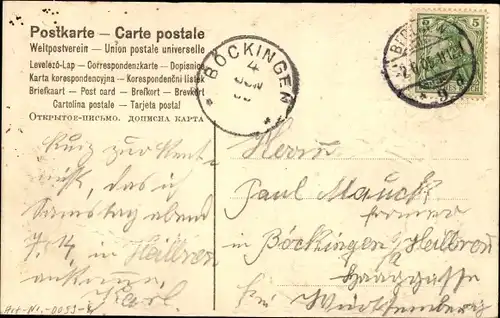 Postkarte — Carte postale
Weltpostverein — Union postale universelle
Levelező-Lap — Correspondenzkarte — Dopisnice
Karta korespondencyjna — Korespondenční lístek
Briefkaart — Post card — Brefkort — Brevkort
Cartolina postale — Tarjeta postal
ОТКРЫТОЕ-ПИСЬМО. ДОПИСНА КАРТА
BÖCKINGEN
4
JUN
BERLIN
5 5
Kurz zur Kennt-
niß, das ich
Samstag abend
7.14 in Heilbron
ankomme.
Karl.
Herrn
Paul Mauck
Former
in Böckingen a/ Heilbron
Haaggasse
Württemberg
Art-Nr.